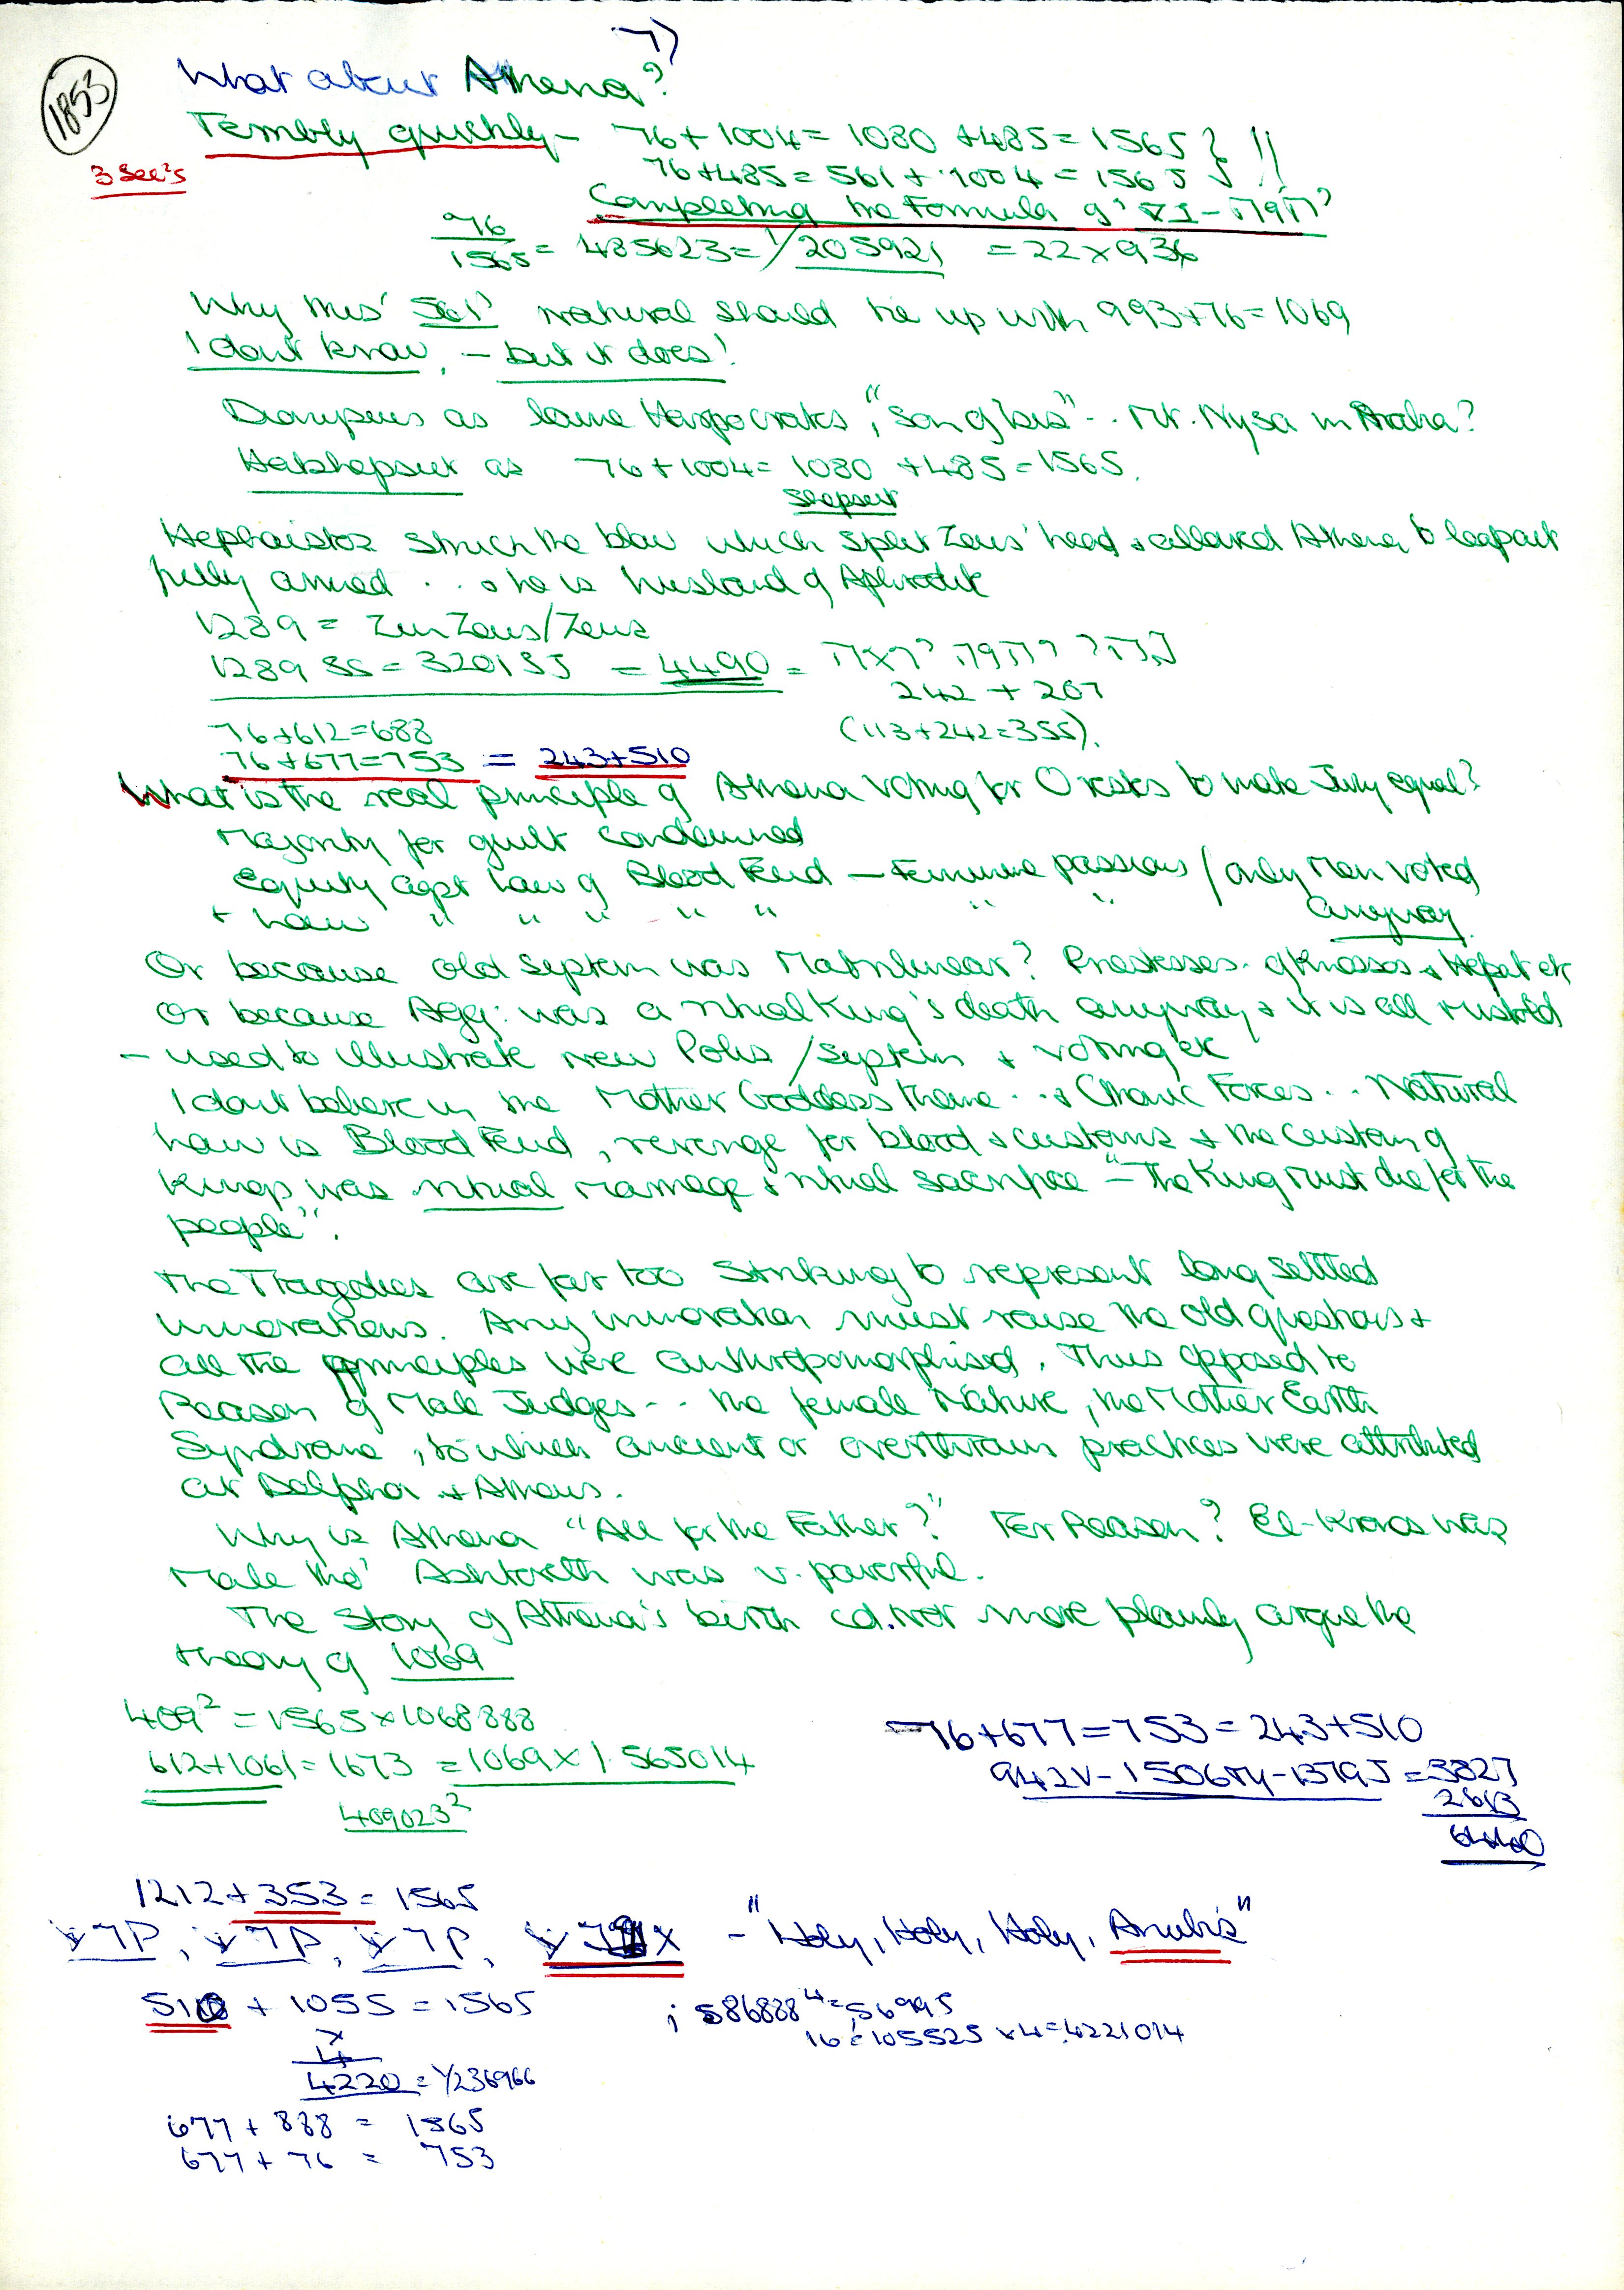 7)
1853
What about Athena?
Terribly quickly - 76 + 1004 = 1080 + 485 = 1565 } //
3 Sec's
76 + 485 = 561 + 1004 = 1565 }
Completing the Formula of
76/1565 = 485623 = 1/205921 = 22 x 936
Why this natural should tie up with 993 + 76 = 1069
I dont know, - but it does!
as lame Harpocrates, "Son of Isis" .. Mt. Nysa in
Hatshepsut as 76 + 1004 = 1080 + 485 = 1565.
Shepsut
Hephaistos struck the blow which split Zeus' head & allowed Athena to leap out
fully armed . . & he is husband of Aphrodite
1289 = Zeus/Zeus
1289 SS = 320155 = 4490 =
242 + 207
76 + 612 = 688 (113 + 242 = 355).
76 + 677 = 753 = 243 + 510
What is the real principle of Athena Voting for Orestes to make Jury equal?
Majority for guilt condemned
Equity agst Law of Blood Feud - Feminine passions / only Men voted
+ Law " " " " " " " anyway
Or because old system was Matrilinear? Priestesses of Knossos & Hepat etc
Or because Agg: was a ritual King's death anyway & it is all mistold
- used to illustrate new Polis / System & voting etc
I dont believe in the Mother Goddess theme .. & Chthonic Forces .. Natural
Law is Blood Feud, revenge for blood & customs & the custom of
Kings was ritual marriage & ritual sacrifice - "The King must die for the
people".
The Tragedies are far too striking to represent long settled
innovations. Any innovation must raise the old questions &
all the principles were anthropomorphised. Thus opposed to
Reason of Male Judges .. the female Nature, the Mother Earth
Syndrome, to which ancient or overthrown practices were attributed
at Delphi & Athens.
Why is Athena "All for the Father?" For Reason? El-Kronos was
Male tho' Ashtoreth was v. powerful.
The Story of Athena's birth cd. not more plainly argue the
theory of 1069
409² = 1565 x 1068888
612 + 1061 = 1673 = 1069 x 1.565014
409023²
76 + 677 = 753 = 243 + 510
= 3827
2613
6440
1212 + 353 = 1565
- "Holy, Holy, Holy, Anubis"
510 + 1055 = 1565
x
4
4220 = 1/236966
; 586888⁴ = 56995
16 = 105525 x 4 = 4221014
677 + 888 = 1565
677 + 76 = 753